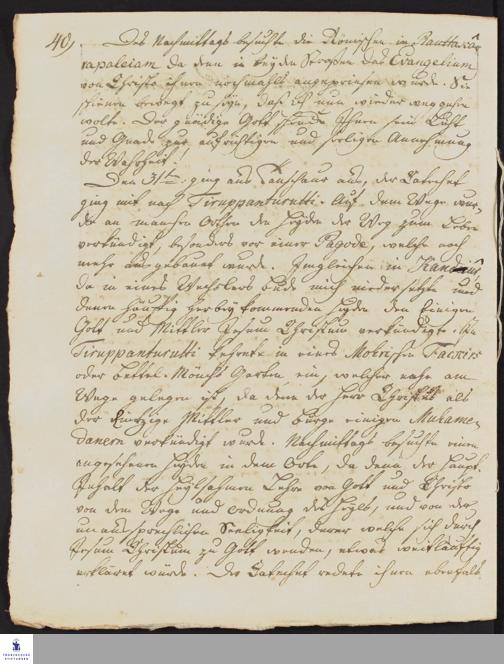 40,
Des Nachmittags besuchte die Römischen in Rauttaka-
rapaleiam da denn in beyden Straßen das Evangelium
von Christo ihnen nochmahls angepriesen wurde. Sie
schienen bewegt zu seyn, daß ich nun wieder weggehen
wolte. Der gnädige Gott schencke ihnen sein Licht
und Gnade zur aufrichtigen und seeligen Annehmung
der Wahrheit!
Den 31ten ging aus Tanschaur aus, der Catechet
ging mit nach Tiruppanturutti. Auf dem Wege wur-
de an manchen Orten den Heyden der Weg zum Leben
verkündigt, besonders vor einer Pagode, welche noch
mehr ausgebauet wurde. Imgleichen in
da in eines Wechslers Bude mich nieder setzte und
denen häuffig herbey kommenden Heyden den Einigen
Gott und Mittler Jesum Christum verkündigte. In
Tiruppanturutti kehrete in eines Mohrischen Fackirs
oder Bettel-Mönchs Garten ein, welcher nahe am
Wege gelegen ist, da denn der Herr Christus als
der Einzige Mittler und Bürge einigen Muhame-
danern verkündigt wurde. Nachmittags besuchte einen
angesehenen Heyden in dem Orte, da denn der Haupt-
Inhalt der heylsahmen Lehre von Gott und Christo
von dem Wege und Ordnung des Heyls, und von der
unaussprechlichen Seeligkeit, derer welche sich durch
Jesum Christum zu Gott wenden, etwas weitläuftig
erkläret wurde. Der Catechet redete ihnen ebenfals
FRANCKESCHE
STIFTUNGEN